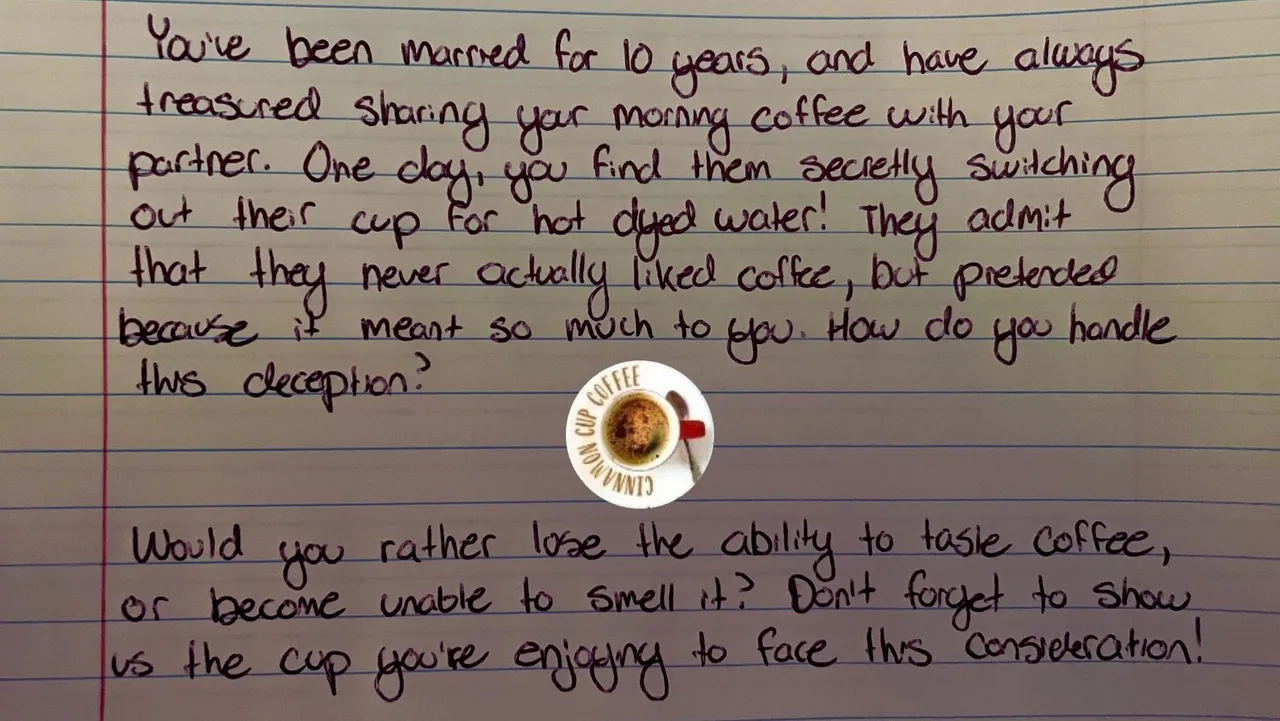 You've been married for 10 years, and have always
treasured sharing your morning coffee with your
partner. One day, you find them secretly switching
out their cup for hot dyed water! They admit
that they never actually liked coffee, but pretended
because it meant so much to you. How do you handle
this deception?
CINNAMON CUP COFFEE
Would you rather lose the ability to taste coffee,
or become unable to smell it? Don't forget to show
us the cup you're enjoying to face this consideration!